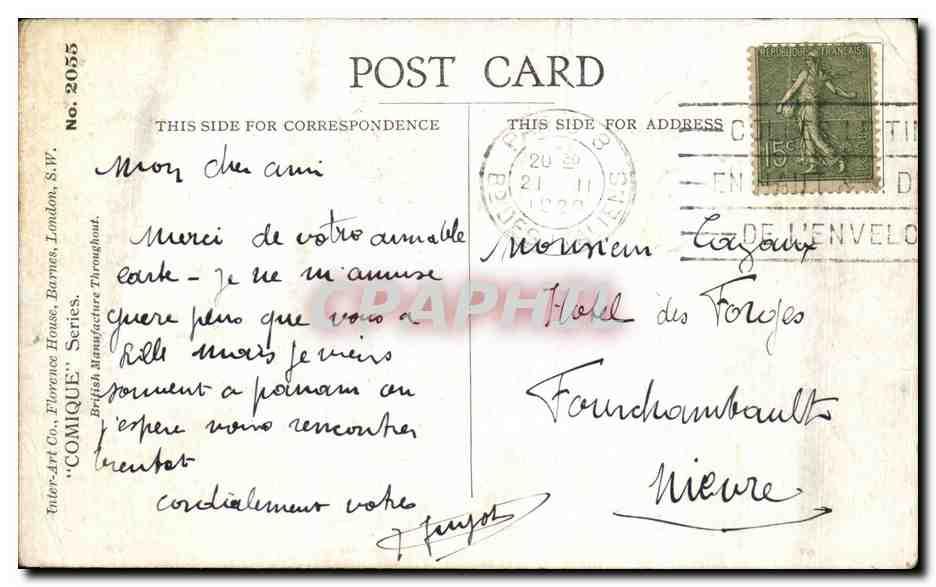 POST CARD
THIS SIDE FOR CORRESPONDENCE
THIS SIDE FOR ADDRESS
No. 2055
Inter-Art Co., Florence House, Barnes, London, S.W.
"COMIQUE" Series.
British Manufacture Throughout.
REPUBLIQUE FRANÇAISE
15c
20
21 II
DE L'ENVELO
Mon cher ami
Merci de votre aimable
carte - je ne m'amuse
guere plus que vous a
Lille mais je viens
souvent a panam ou
j'espere vous rencontrer
bientot
cordialement votre
Monsieur Cazaux
Hotel des Forges
Fourchambault
Nievre
CPAPHIL